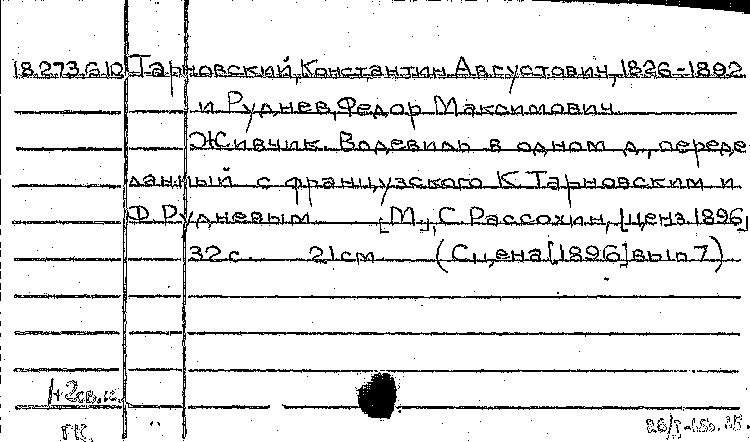 18.273.6.10 Тарновский, Константин Августович, 1826-1892
и Руднев, Федор Максимович
Живчик. Водевиль в одном д., переде
ланный с французского К. Тарновским и
Ф. Рудневым [М.], С. Рассохин, [ценз. 1896]
32 с. 21 см (Сцена [1896] вып 7)
1+2св.к.
ГК.